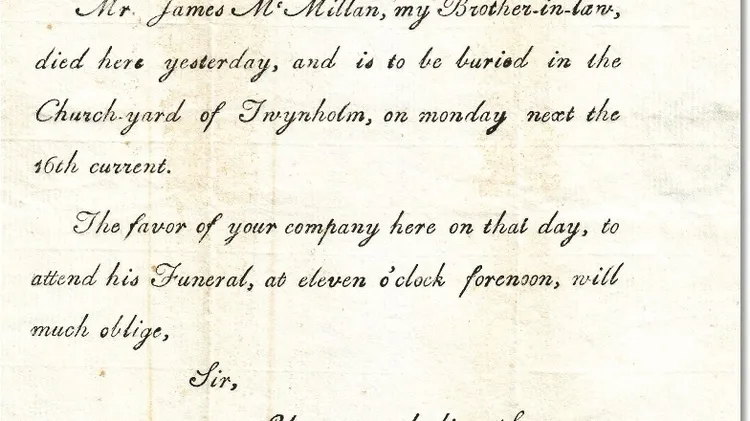 Mr. James McMillan, my Brother-in-law,
died here yesterday, and is to be buried in the
Church-yard of Twynholm, on monday next the
16th current.
The favor of your company here on that day, to
attend his Funeral, at eleven o'clock forenoon, will
much oblige,
Sir,